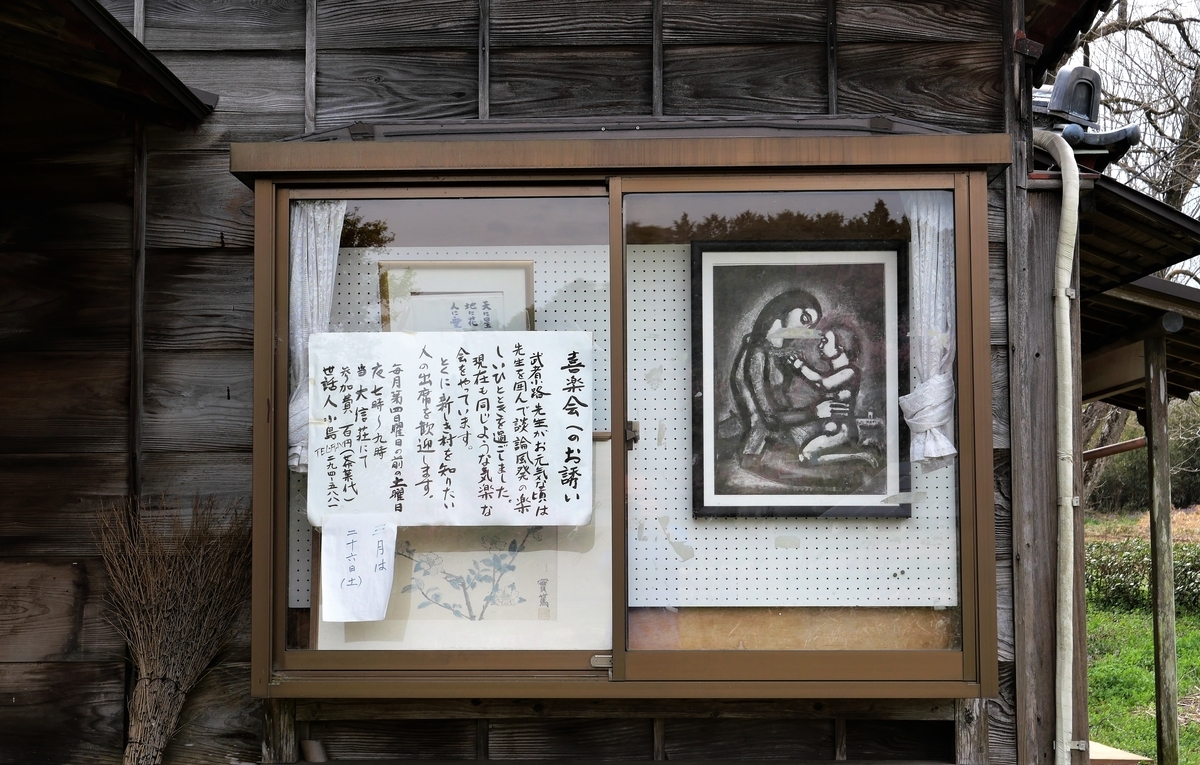 喜楽会へのお誘い
武者小路先生がお元気な頃は
先生を囲んで談論風発の楽
しいひとときを過ごしました。
現在も同じような気楽な
会をやっています。
とくに新しき村を知りたい
人の出席を歓迎します。
毎月第四日曜日の前の土曜日
夜 七時〜九時
当 大信荘にて
参加費、百円(茶菓代)
世話人 小島
三月は
二十六日(土)
天に星
地に花
人に愛
實篤